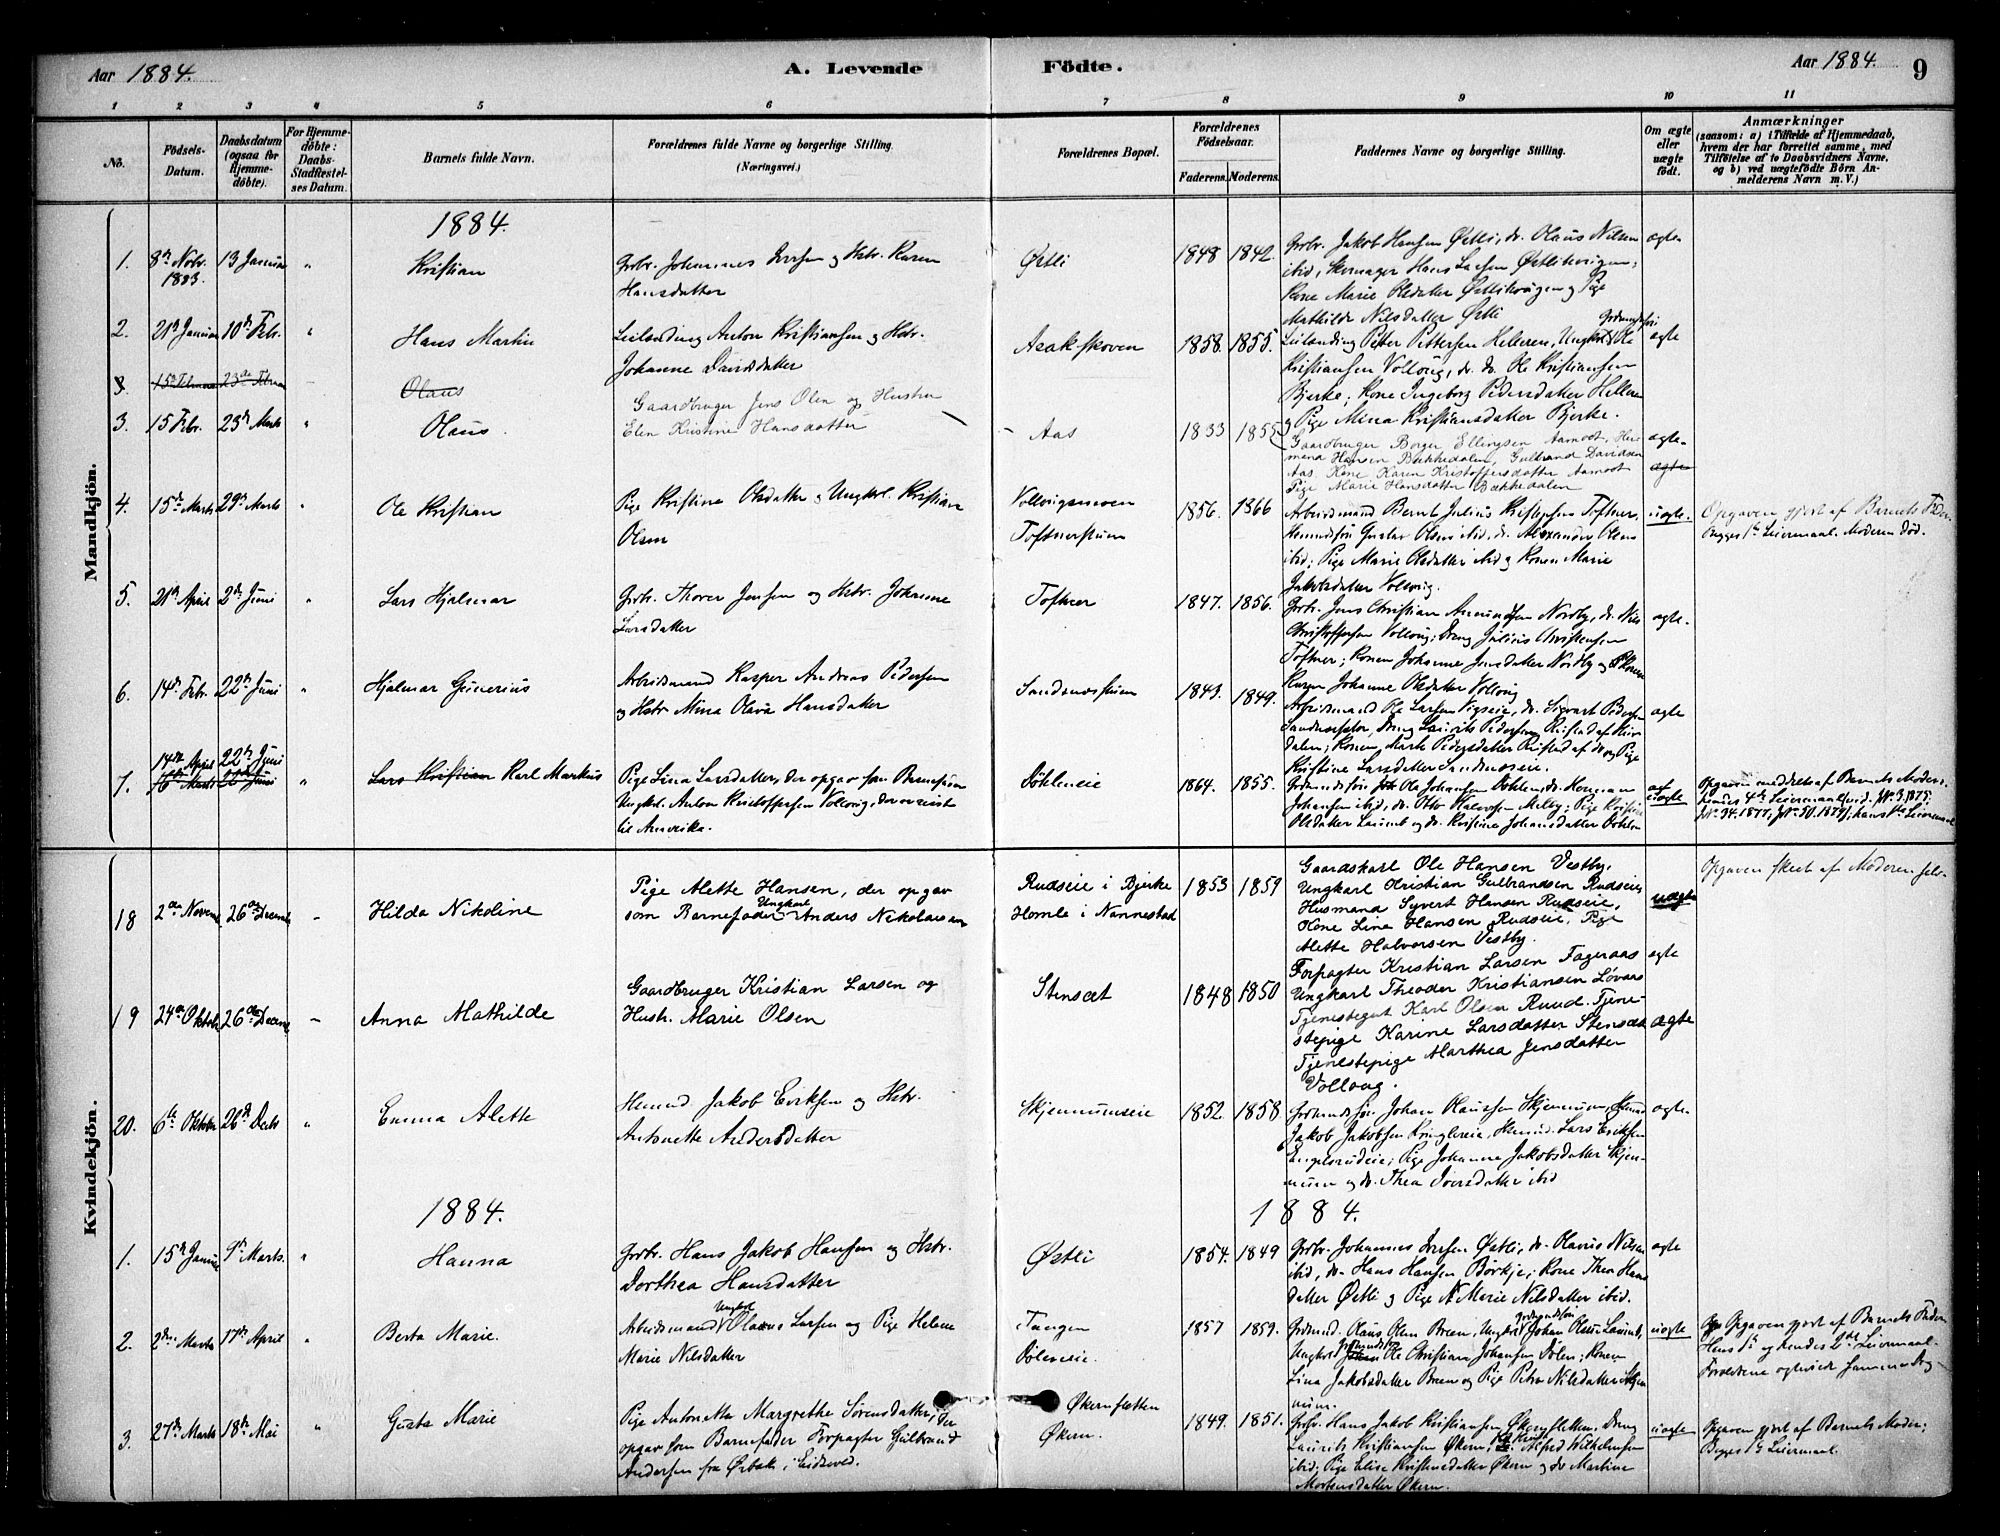 Aar 1884.
A. Levende Födte.
Aar 1884.
9
1 2 3 4 5 6 7 8 9 10 11
No.
Födsels-
Datum.
Daabsdatum
(ogsaa for
Hjemme-
døbte).
For Hjemme-
døbte:
Daabs-
Stadfæstel-
ses Datum.
Barnets fulde Navn.
Forældrenes fulde Navne og borgerlige Stilling.
(Næringsvei.)
Forældrenes Bopæl.
Forældrenes
Födselsaar.
Faderens. Moderens.
Faddernes Navne og borgerlige Stilling.
Om ægte
eller
uægte
födt.
Anmærkninger
(saasom: a) i Tilfælde af Hjemmedaab,
hvem der har forrettet samme, med
Tilföielse af to Daabsvidners Navne,
og b) ved uægtefödte Börn An-
melderens Navn m. V.)
Mandkjön.
1884.
1. 8de Novbr. 1883. 13 Januar " Kristian
Grbr. Johannes Iversen og Hstr. Karen
Hansdatter
Østli
1848 1842.
Grbr. Jakob Hansen Østli, do. Olaus Nilsen
ibid, Skomager Hans Larsen Østlihougen;
Kone Marie Olsdatter Østlihougen og Pige
Mathilde Nilsdatter Østli
ægte
2. 21de Januar 10de Febr. " Hans Martin
Leilending Anton Kristiansen og Hstr.
Johanne Davidsdatter
Aaakskoven
1858. 1855.
Leilending Peter Pettersen Helleren, Ungkarl Gaardmandssøn Ole
Kristiansen Vollaug, do. do. Ole Kristiansen
Bjerke, Kone Ingeborg Pedersdatter Helleren
og Pige Mina Kristiansdatter Bjerke.
ægte
3. 15de Februar 23de Februar Olaus
3. 15 Febr. 23de Marts " Olaus.
Gaardbruger Jens Olsen og Hustru
Elen Kristine Hansdatter
Aas
1833 1855
Gaardbruger Borger Ellingsen Aamodt, Hus-
mand Hansen Bækkedalen, Gulbrand Davidsen
Aas, Kone Karen Kristoffersdatter Aamodt
Pige Marie Hansdatter Bækkedalen
ægte
ægte
4. 15de Marts 29de Marts " Ole Kristian
Pige Kristine Olsdatter og Ungkrl. Kristian
Olsen
Vollougsmoen
Toftnerstuen
1856. 1866
Arbeidsmand Bernt Julius Kristofersen Toftner,
Husmdssön Gustav Olsen ibid, do. Alexander Olsen
ibid; Pige Marie Olsdatter ibid og Konen Marie
Jakobsdatter Vollaug.
uægte.
Opgaven gjort af Barnets Fader.
Begges 1ste Leiermaal. Moderen død.
5. 21de April 2den Juni " Lars Hjalmar
Grbr. Thorer Jensen og Hstr. Johanne
Larsdatter
Toftner
1847. 1856.
Grbr. Jens Christian Amundsen Nordby, do. Nils
Christoffersen Vollaug; Dreng Julius Christensen
Toftner; Konen Johanne Jensdatter Nordby og Konen
Karen Johanne Olsdatter Vollaug
ægte.
6. 14de Febr. 22de Juni " Hjalmar Gunerius
Arbeidsmand Kasper Andreas Pedersen
og Hstr. Mina Olava Hansdatter
Sandsnesstuen
1849.
Arbeidsmand Ole Larsen Vigseie, do. Sigvart Pedersen
ægte
7. 14de April 22de Juni
16de Marts 26de Juni " Lars Kristian Karl Markus
Pige Lina Larsdatter, der opgav som Barnefader
Ungkrl. Anton Kristoffersen Vollaug, der er reist
til Amerika.
Döhleneie
1864. 1855.
Johansen ibid, do. Otto Halvorsen Melby; Pige Kristine
uægte
Opgaven meddelt af Barnets Moder.
Kvindekjön.
18 2den Novembr 26de Decembr " Hilda Nikoline
Pige Alette Hansen, der opgav
som Barnefader Ungkarl Anders Nikolaisen
Rudseie i Bjerke
Homle i Nannestad
1853 1859
Gaardskarl Ole Hansen Vestby,
Ungkarl Kristian Gulbrandsen Rudseie,
Husmand Syvert Hansen Rudseie,
Kone Line Hansen Rudseie, Pige
Alette Halvorsen Vestby.
uægte
Opgaven skeet af Moderen selv.
19 24de Oktobr 26de Decembr " Anna Mathilde
Gaardbruger Kristian Larsen og
Hustr. Marie Olsen
Stensæt
1848 1850
Forpagter Kristian Larsen Fageraas
Ungkarl Theodor Kristiansen Løvaas
Tjenestegut Karl Olsen Ruud. Tjene-
stepige Karine Larsdatter Stensæt
Tjenestepige Marthea Jensdatter
Vollaug.
ægte
ægte
20. 6te Oktober 26de Decbr " Emma Alette
Husmd Jakob Eriksen og Hstr.
Antonette Andersdatter
Skjennumseie
1852. 1858
Grdmdssön Johan Olaussen Skjennum, Husmd
Jakob Jakobsen Kringlereie, Husmd. Lars Eriksen
Engelsrudeie; Pige Johanne Jakobsdatter Skjen-
num og do. Thea Iversdatter ibid
ægte
1884.
1884.
1. 15de Januar 9de Marts. " Hanna
Grbr. Hans Jakob Hansen og Hstr.
Dorthea Hansdatter
Østli
1854. 1849
Grbr. Johannes Iversen Østli, do. Olaus Nilsen
ibid, do. Hans Hansen Børkje; Kone Thea Hans-
datter Østli og Pige A Marie Nilsdatter ibid.
ægte
2. 2den Marts 17de April " Berta Marie.
Arbeidsmand Ungkrl Olaus Larsen og Pige Helene
Marie Nilsdatter
Tangen
Döleneie.
1857 1859.
Grdmnd. Olaus Olsen Breen, Ungkrl grdmandssön Johan Olsen Laumb,
Ungkrl Ole Christian Johansen Dölen; Konen
Lina Jakobsdatter Breen og Pige Petra Nilsdatter Skjen-
num.
uægte
Opgaven gjort af Barnets Fader.
Hans 1ste og hendes 2det Leiermaal.
3. 27de Marts 18de Mai " Gusta Marie
Pige Antonette Margrethe Sørensdatter, der
opgav som Barnefader Forpagter Gulbrand
Andersen fra Ørbæk i Eidsvold.
Økernfletten
Økern.
1849. 1851.
Grbr. Hans Jakob Kristiansen Økernfletten, Dreng
Laurits Kristiansen Økern, Alfred Wilhelmsen
ibid; Pige Elise Kristensdatter Økern og do Martine
Mortensdatter Økern.
uægte
Opgaven gjort af Barnets Moder;
Begges 1ste Leiermaal.